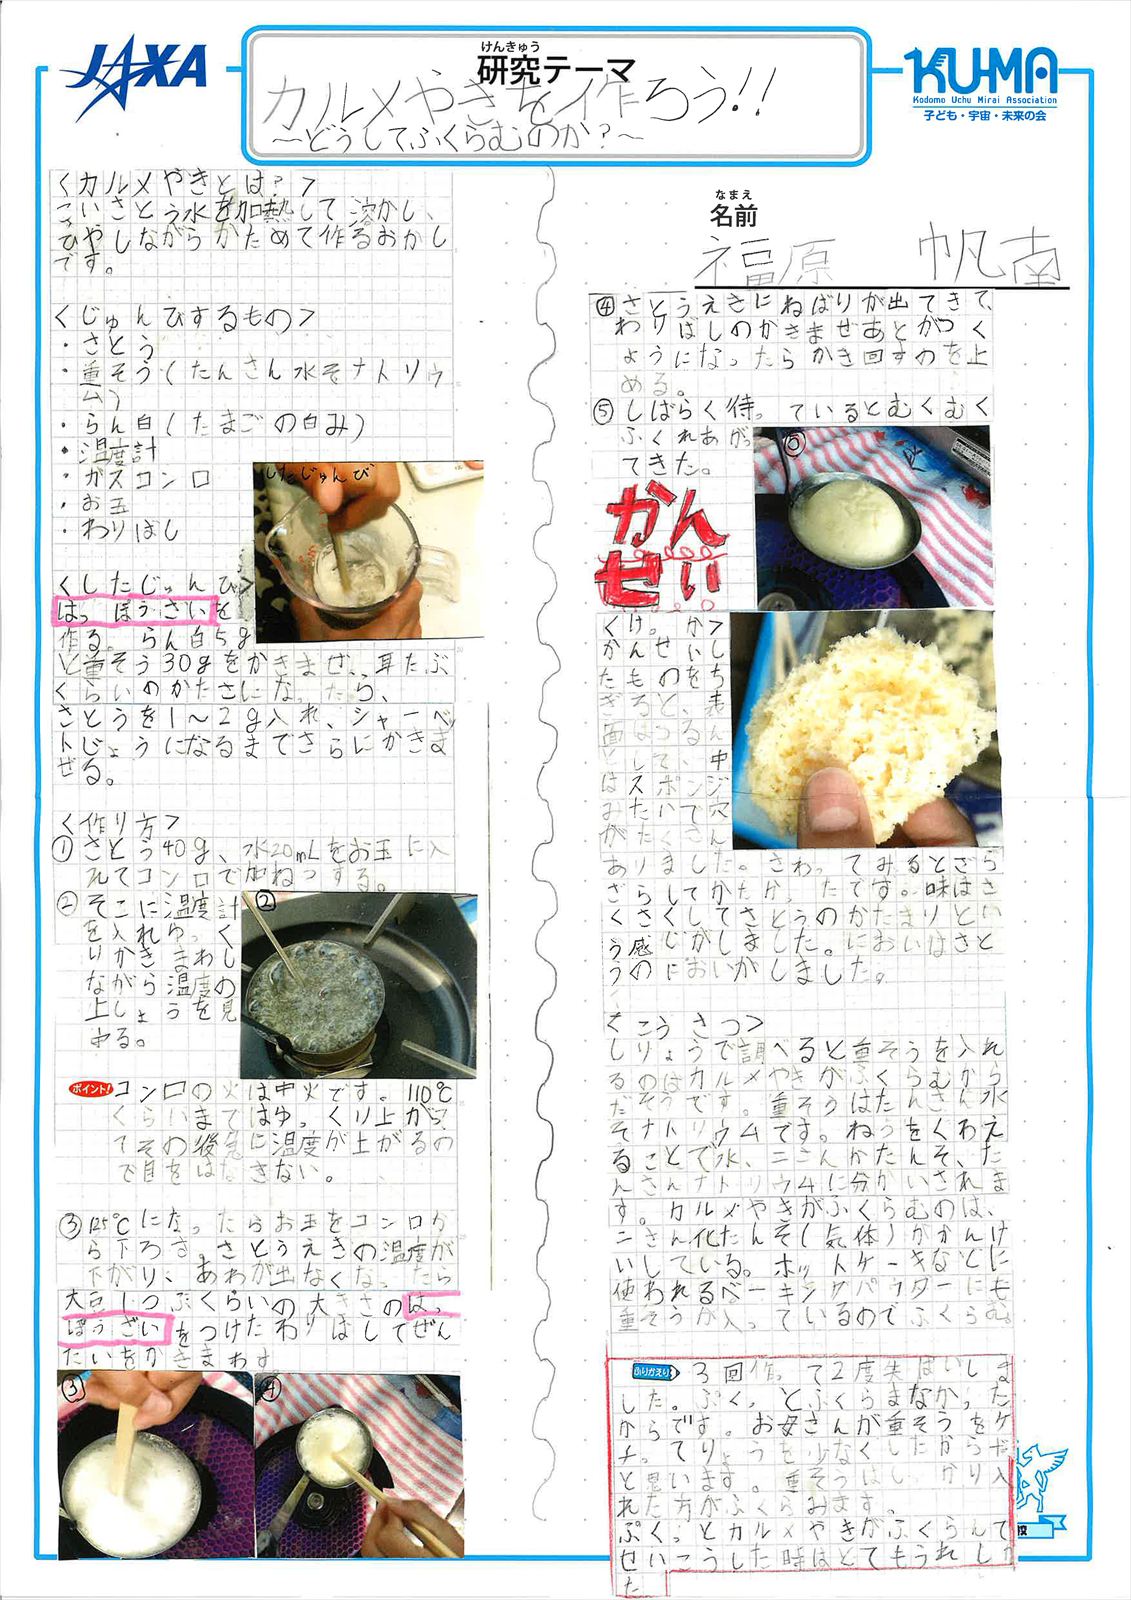 JAXA
けんきゅう
研究テーマ
カルメやきを作ろう!!
～どうしてふくらむのか?～
KU-MA
Kodomo Uchu Mirai Association
子ども・宇宙・未来の会
なまえ
名前
福原 帆南
<カルメやきとは?>
こいさとう水を加熱して溶かし、
ひやしながらかためて作るおかし
です。
<じゅんびするもの>
・さとう
・重そう(たんさん水そナトリウ
ム)
・らん白(たまごの白み)
・温度計
・ガスコンロ
・お玉
・わりばし
<したじゅんび>
はっぽうざいを
作る。らん白5g
と重そう30gをかきまぜ、耳たぶ
くらいのかたさになったら、
さとうを1～2g入れ、シャーベッ
トじょうになるまでさらにかきま
ぜる。
したじゅんび
<作り方>
①さとう40g、水20mLをお玉に入
れてコンロで加ねつする。
②そこに温度計
を入れゆっく
りかきまわし
ながら温度の
上しょうを見
守る。
②
ポイント!
コンロの火は中火です。110℃
くらいまではゆっくり上がっ
てその後急に温度が上がるの
で目をはなさない。
③125℃になったらお玉をコンロか
ら下ろす。さとうえきの温度が
下がり、あわが出なくなったら
大豆1つぶくらいの大きさのはっ
ぽうざいをつけたわりばしでぜん
たいをかきまわす
③
④
④さとうえきにねばりが出てきて、
わりばしのかきまぜあとがつく
ようになったらかき回すのを止
める。
⑤しばらく待っているとむくむく
ふくれあがっ
てきた。
⑤
かん
せい
<けっか>
かんせいし
たものをち
ぎると、表
面はつるん
として、中
はスポンジ
みたいで穴
がたくさん
ありました。さわってみるとざら
ざらしてかたかったです。味はさ
くさくしてさとうのかたまりとい
う感じがしました。においはさと
うのにおいがしました。
<こうさつ>
しりょうで調べると重そうを入れ
るのはカルメやきがふくらむから
だそうです。重そうはたんさん水
そナトリウムです。ねつをくわえ
ることで水、二さんかたんそ、た
んさんナトリウムに分かいされま
す。カルメやきがふくらむのは、
二さん化たんそ(気体)がかんけ
いしている。ホットケーキなどに
使われるベーキングパウダーにも
重そうが入っているのでふくらむ。
ふりかえり
3回作って2度失ぱいしま
した。ぷくっとふくらまなかった
からです。お母さんが重そうをケ
チってりょうを少なくしたからだ
と思います。重そうはしっかり入
れた方がふくらみます。
ぷくっとカルメやきがふくらんで
せいこうした時はとてもうれしかっ
た